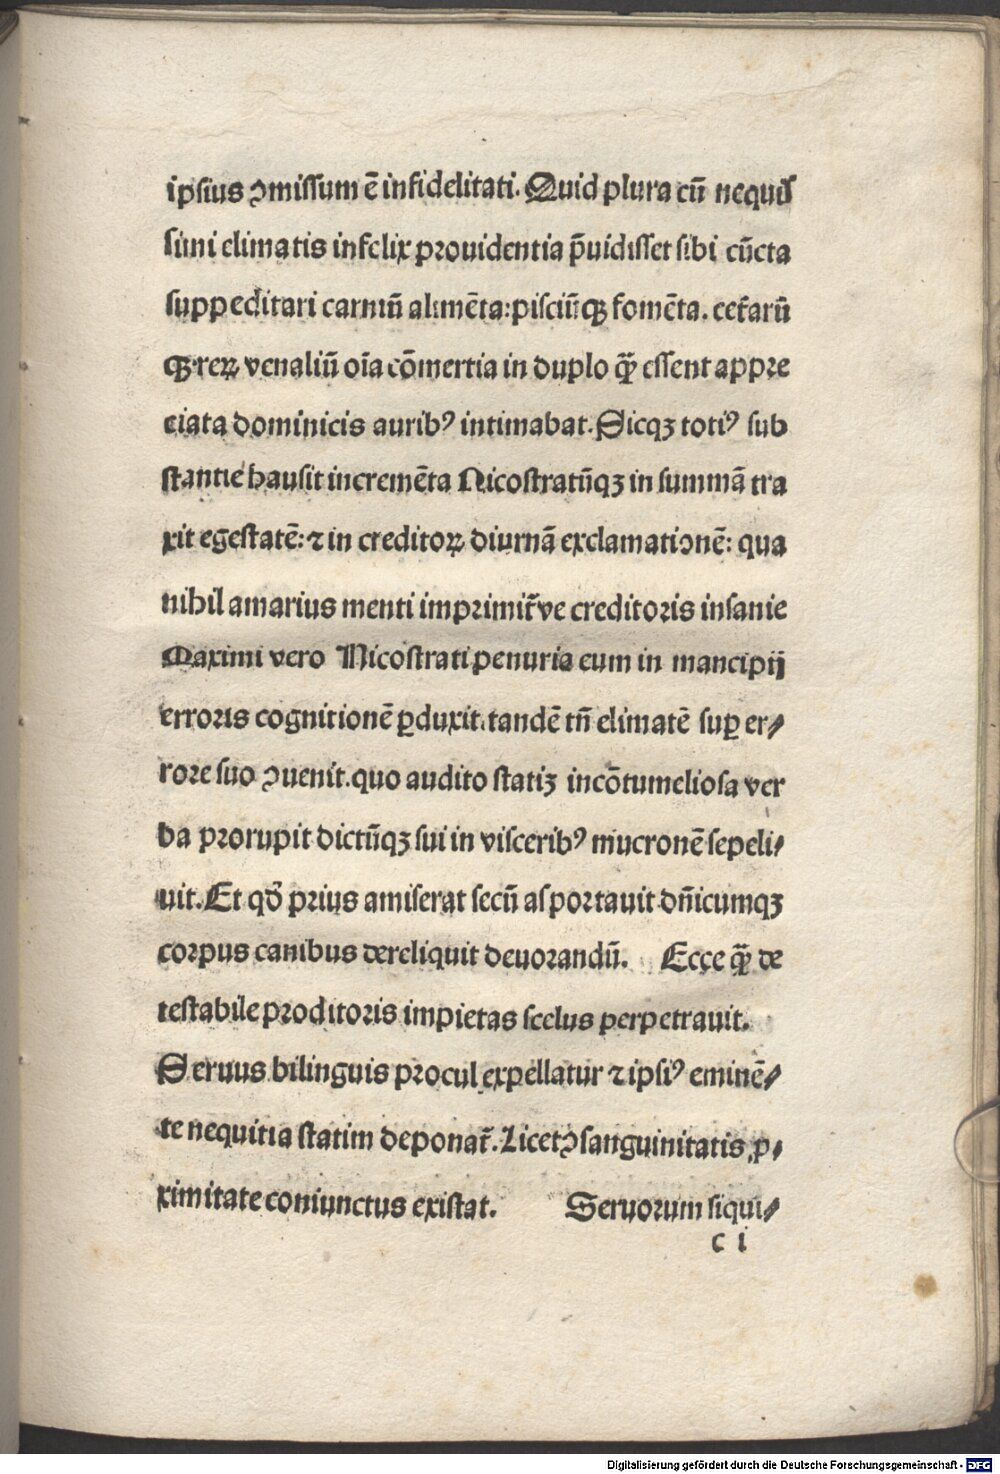 ipsius ɔmissum ē infidelitati. Quid plura cū nequis
simi elimatis infelix prouidentia p̄uidisset sibi cūcta
suppeditari carniū alimēta: pisciūqꝫ fomēta. ceťarū
qꝫ reꝝ venaliū oīa cōmertia in duplo q̄ꝫ essent appre
ciata dominicis auribꝰ intimabat. Sicqꝫ totiꝰ sub
stantie hausit incremēta Nicostratūqꝫ in summā tra
xit egestatē: ⁊ in creditoꝝ diurnā exclamationē: qua
nihil amarius menti imprimiť ve creditoris insanie
Maximi vero Nicostrati penuria eum in mancipij
erroris cognitionē ꝑduxit. tandē tn̄ elimatē suꝑ er⸗
rore suo ɔuenit. quo audito statiꝫ in cōtumeliosa ver
ba prorupit dictūqꝫ sui in visceribꝰ mucronē sepeli⸗
uit. Et qď prius amiserat secū asportauit dn̄icumqꝫ
corpus canibus dereliquit deuorandū. Ecce q̄ꝫ de
testabile proditoris impietas scelus perpetrauit.
Seruus bilinguis procul expellatur ⁊ ipsiꝰ eminē⸗
te nequitia statim deponať. Licet ɔsanguinitatis ꝓ⸗
ximitate coniunctus existat. Seruorum siqui⸗
c i
Digitalisierung gefördert durch die Deutsche Forschungsgemeinschaft - DFG